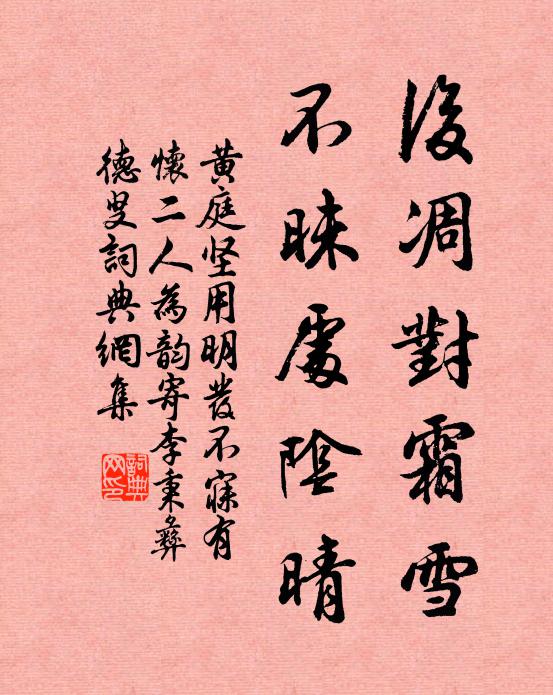 後凋對霜雪
不昧處陰晴
黄庭坚用明發不寐有
懷二人為韵寄李秉彝
德叟詞典網集
詞典网印